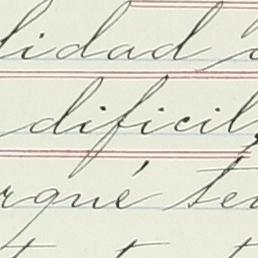 lidad
dificil
rqué te